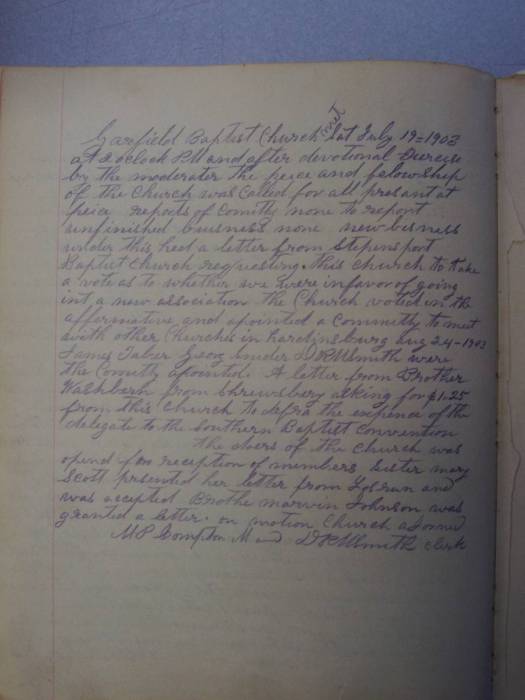 Garfield Baptist Church met Sat July 19=1902
at 2 oclock PM and after devotional Exercise
by the moderater the peice and felowship
of the Church was Called for all presant at
peice reports of Comitty none to report
unfinished buisness none new bisness
under this hed a letter from Stepensport
Baptist Church requesting this Church to take
a vote as to whether we were infavor of going
int a new association the Church voted in the
affermative and apointed a Committy to meet
with other Churches in hardinsburg aug 24-1902
James Taber Georg D R M Smith were
the Comitty apointed A letter from Brother
Washbern from Shrewsbery asking for $1.25
from this Church to defra the expence of the
delegate to the Southern Baptist Convention
the dores of the Church was
opend for reception of members Sister mary
Scott presented her letter from and
was accepted Brothe marvin Johnson was
granted a letter. on motion Church adorned
M P Compton M and D R M Smith clerk